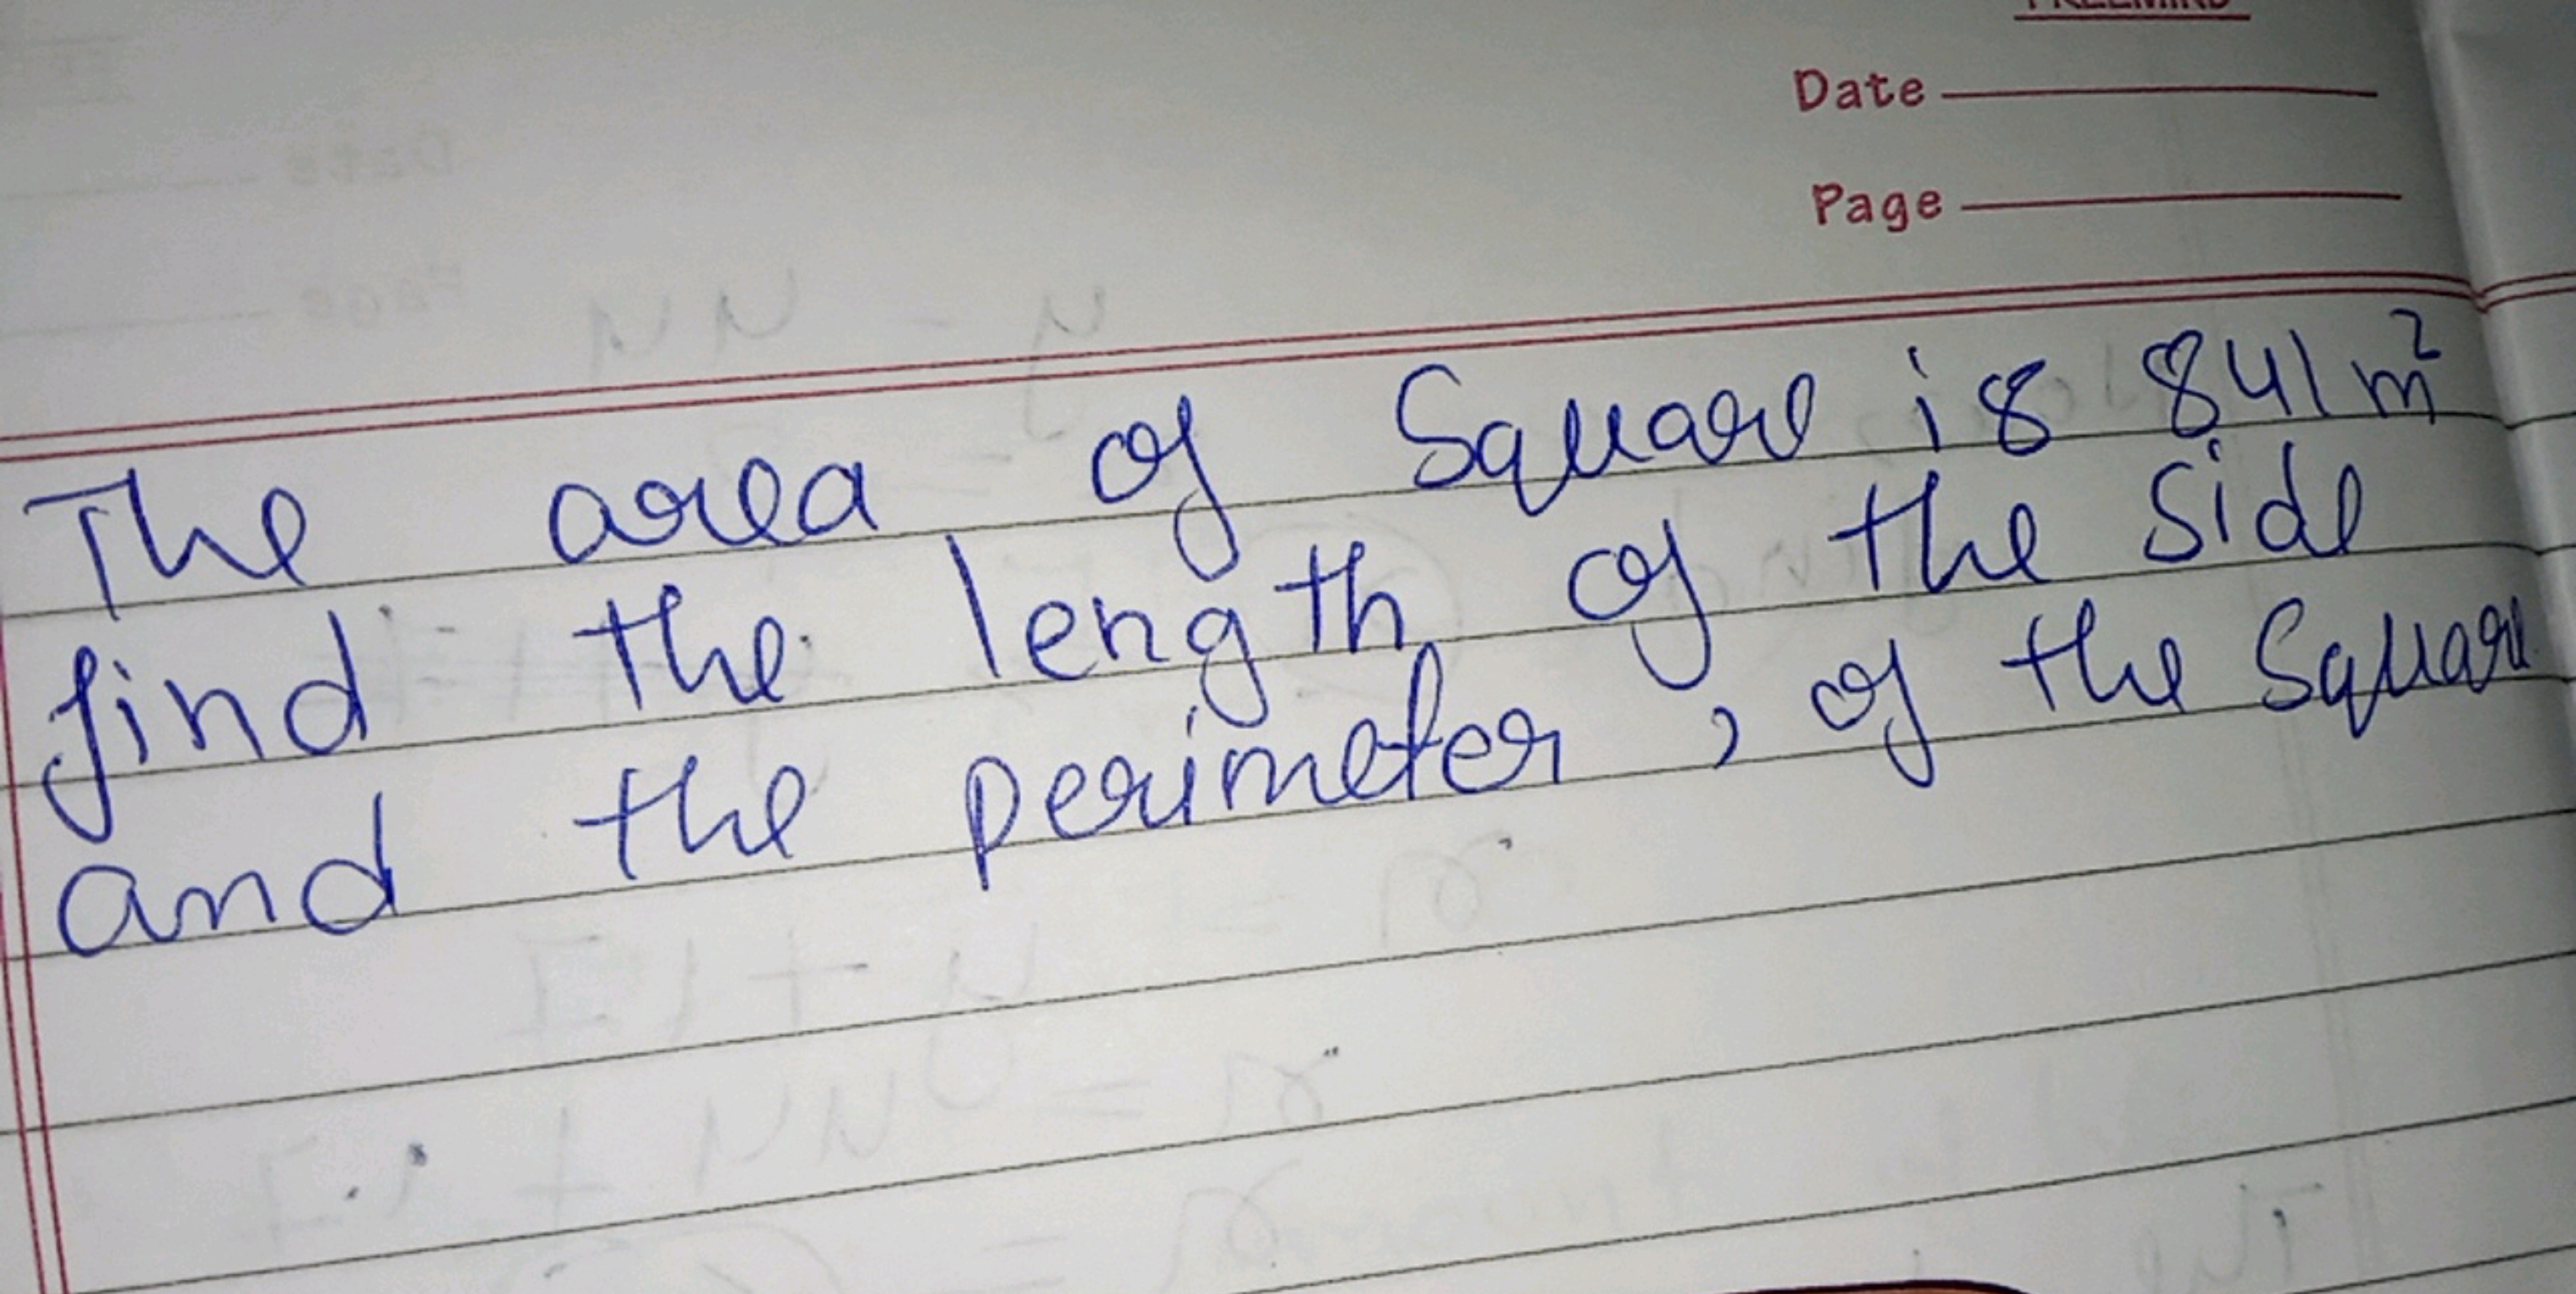 Date
Page
The area of Square is 841 m²
find the length of the side
and the perimeter, of the Square